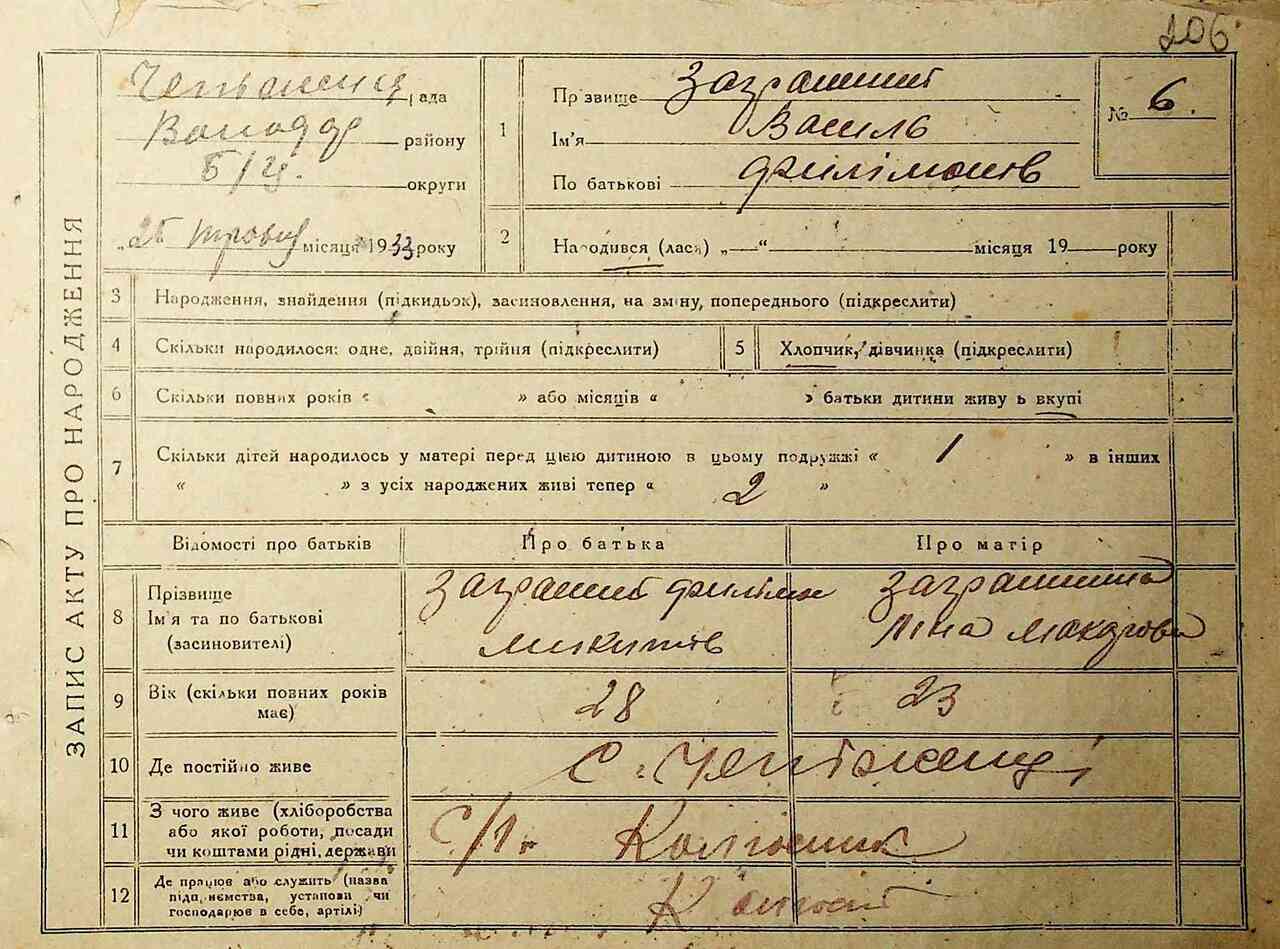 206
ЗАПИС АКТУ ПРО НАРОДЖЕННЯ
рада
Володар району
Б/Ц. округи
„25 травня місяця 1933 року
1
Прізвище
Ім'я Василь
По батькові Филімонів
№ 6.
2
Народився (лася) „—“ місяця 19 року
3 Народження, знайдення (підкидьок), засиновлення, на зміну, попереднього (підкреслити)
4 Скільки народилося: одне, двійня, трійня (підкреслити) 5 Хлопчик, дівчинка (підкреслити)
6 Скільки повних років « » або місяців « » батьки дитини живуть вкупі
7 Скільки дітей народилось у матері перед цією дитиною в цьому подружжі « 1 » в інших
« » з усіх народжених живі тепер « 2 »
Відомості про батьків Про батька Про матір
8 Прізвище
Ім'я та по батькові
(засиновителі)
Филімон
Микитів
Макарова
9 Вік (скільки повних років має) 28 23
10 Де постійно живе с.
11 З чого живе (хліборобства
або якої роботи, посади
чи коштами рідні, держави
с/г Колгосник
12 Де працює або служить (назва
підприємства, установи чи
господарює в себе, артілі)
Колгосп